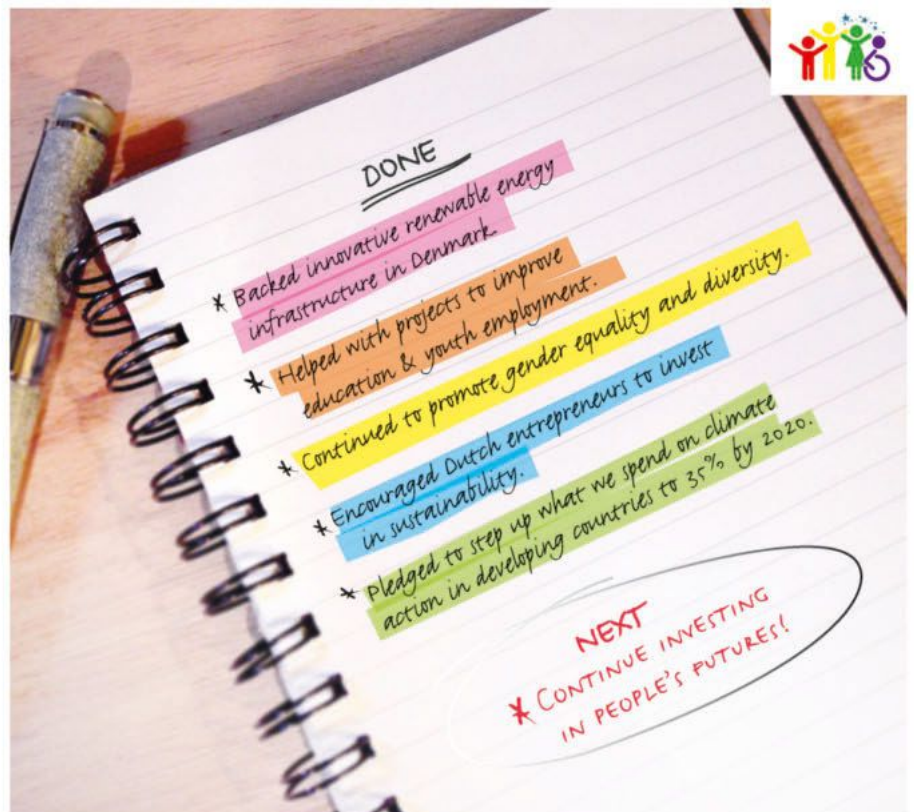 DONE
* Backed innovative renewable energy
infrastructure in Denmark.
* Helped with projects to improve
education & youth employment.
* Continued to promote gender equality and diversity.
* Encouraged Dutch entrepreneurs to invest
in sustainability.
* Pledged to step up what we spend on climate
action in developing countries to 35% by 2020.
NEXT
* CONTINUE INVESTING
IN PEOPLE'S FUTURES!